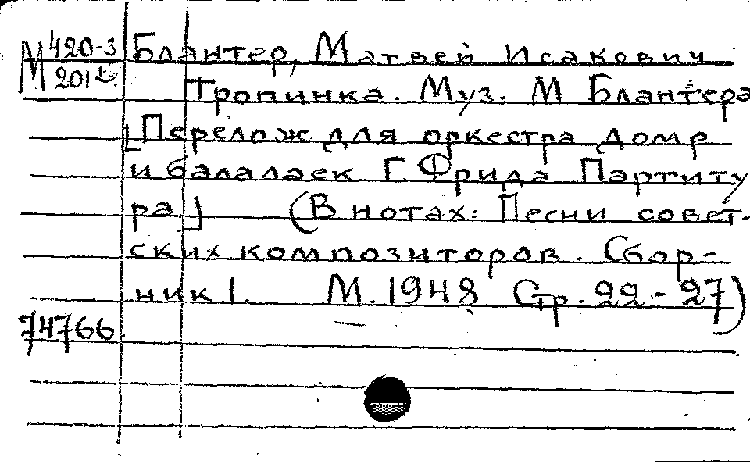 М 420-3 Блантер, Матвей Исакович
201 Тропинка. Муз. М Блантера
[Перелож для оркестра домр
и балалаек Г. Фрида Партиту
ра] (В нотах: Песни совет-
ских композиторов. Сбор-
ник 1. М. 1948 Стр. 22-27)
74766